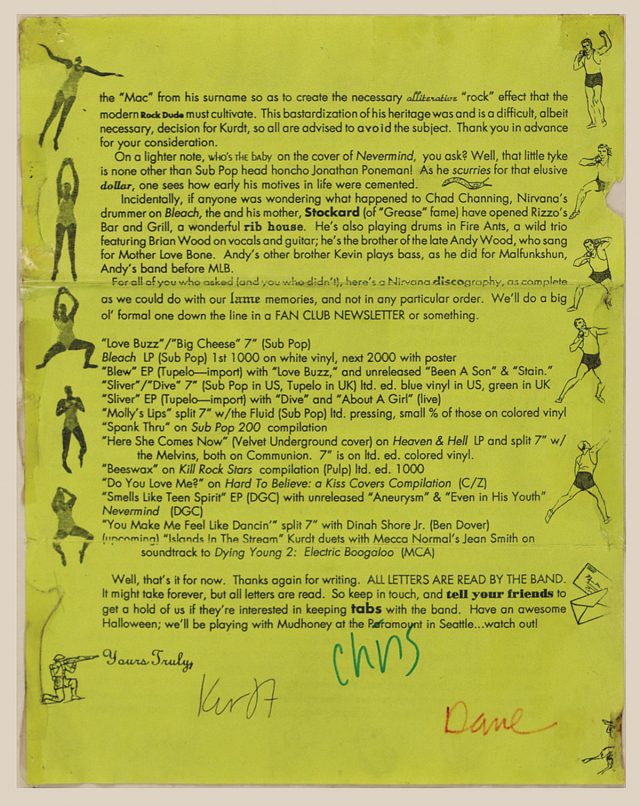 the "Mac" from his surname so as to create the necessary alliterative "rock" effect that the
modern Rock Dude must cultivate. This bastardization of his heritage was and is a difficult, albeit
necessary, decision for Kurdt, so all are advised to avoid the subject. Thank you in advance
for your consideration.
On a lighter note, WHO'S THE BABY on the cover of Nevermind, you ask? Well, that little tyke
is none other than Sub Pop head honcho Jonathan Poneman! As he scurries for that elusive
dollar, one sees how early his motives in life were cemented.
Incidentally, if anyone was wondering what happened to Chad Channing, Nirvana's
drummer on Bleach, the and his mother, Stockard (of "Grease" fame) have opened Rizzo's
Bar and Grill, a wonderful rib house. He's also playing drums in Fire Ants, a wild trio
featuring Brian Wood on vocals and guitar; he's the brother of the late Andy Wood, who sang
for Mother Love Bone. Andy's other brother Kevin plays bass, as he did for Malfunkshun,
Andy's band before MLB.
For all of you who asked (and you who didn't), here's a Nirvana discography, as complete
as we could do with our lame memories, and not in any particular order. We'll do a big
ol' formal one down the line in a FAN CLUB NEWSLETTER or something.
"Love Buzz"/"Big Cheese" 7" (Sub Pop)
Bleach LP (Sub Pop) 1st 1000 on white vinyl, next 2000 with poster
"Blew" EP (Tupelo—import) with "Love Buzz," and unreleased "Been A Son" & "Stain."
"Sliver"/"Dive" 7" (Sub Pop in US, Tupelo in UK) ltd. ed. blue vinyl in US, green in UK
"Sliver" EP (Tupelo—import) with "Dive" and "About A Girl" (live)
"Molly's Lips" split 7" w/the Fluid (Sub Pop) ltd. pressing, small % of those on colored vinyl
"Spank Thru" on Sub Pop 200 compilation
"Here She Comes Now" (Velvet Underground cover) on Heaven & Hell LP and split 7" w/
the Melvins, both on Communion. 7" is on ltd. ed. colored vinyl.
"Beeswax" on Kill Rock Stars compilation (Pulp) ltd. ed. 1000
"Do You Love Me?" on Hard To Believe: a Kiss Covers Compilation (C/Z)
"Smells Like Teen Spirit" EP (DGC) with unreleased "Aneurysm" & "Even in His Youth"
Nevermind (DGC)
"You Make Me Feel Like Dancin'" split 7" with Dinah Shore Jr. (Ben Dover)
(upcoming) "Islands In The Stream" Kurdt duets with Mecca Normal's Jean Smith on
soundtrack to Dying Young 2: Electric Boogaloo (MCA)
Well, that's it for now. Thanks again for writing. ALL LETTERS ARE READ BY THE BAND.
It might take forever, but all letters are read. So keep in touch, and tell your friends to
get a hold of us if they're interested in keeping tabs with the band. Have an awesome
Halloween; we'll be playing with Mudhoney at the Paramount in Seattle...watch out!
Yours Truly,
Chris
Kurdt
Dave